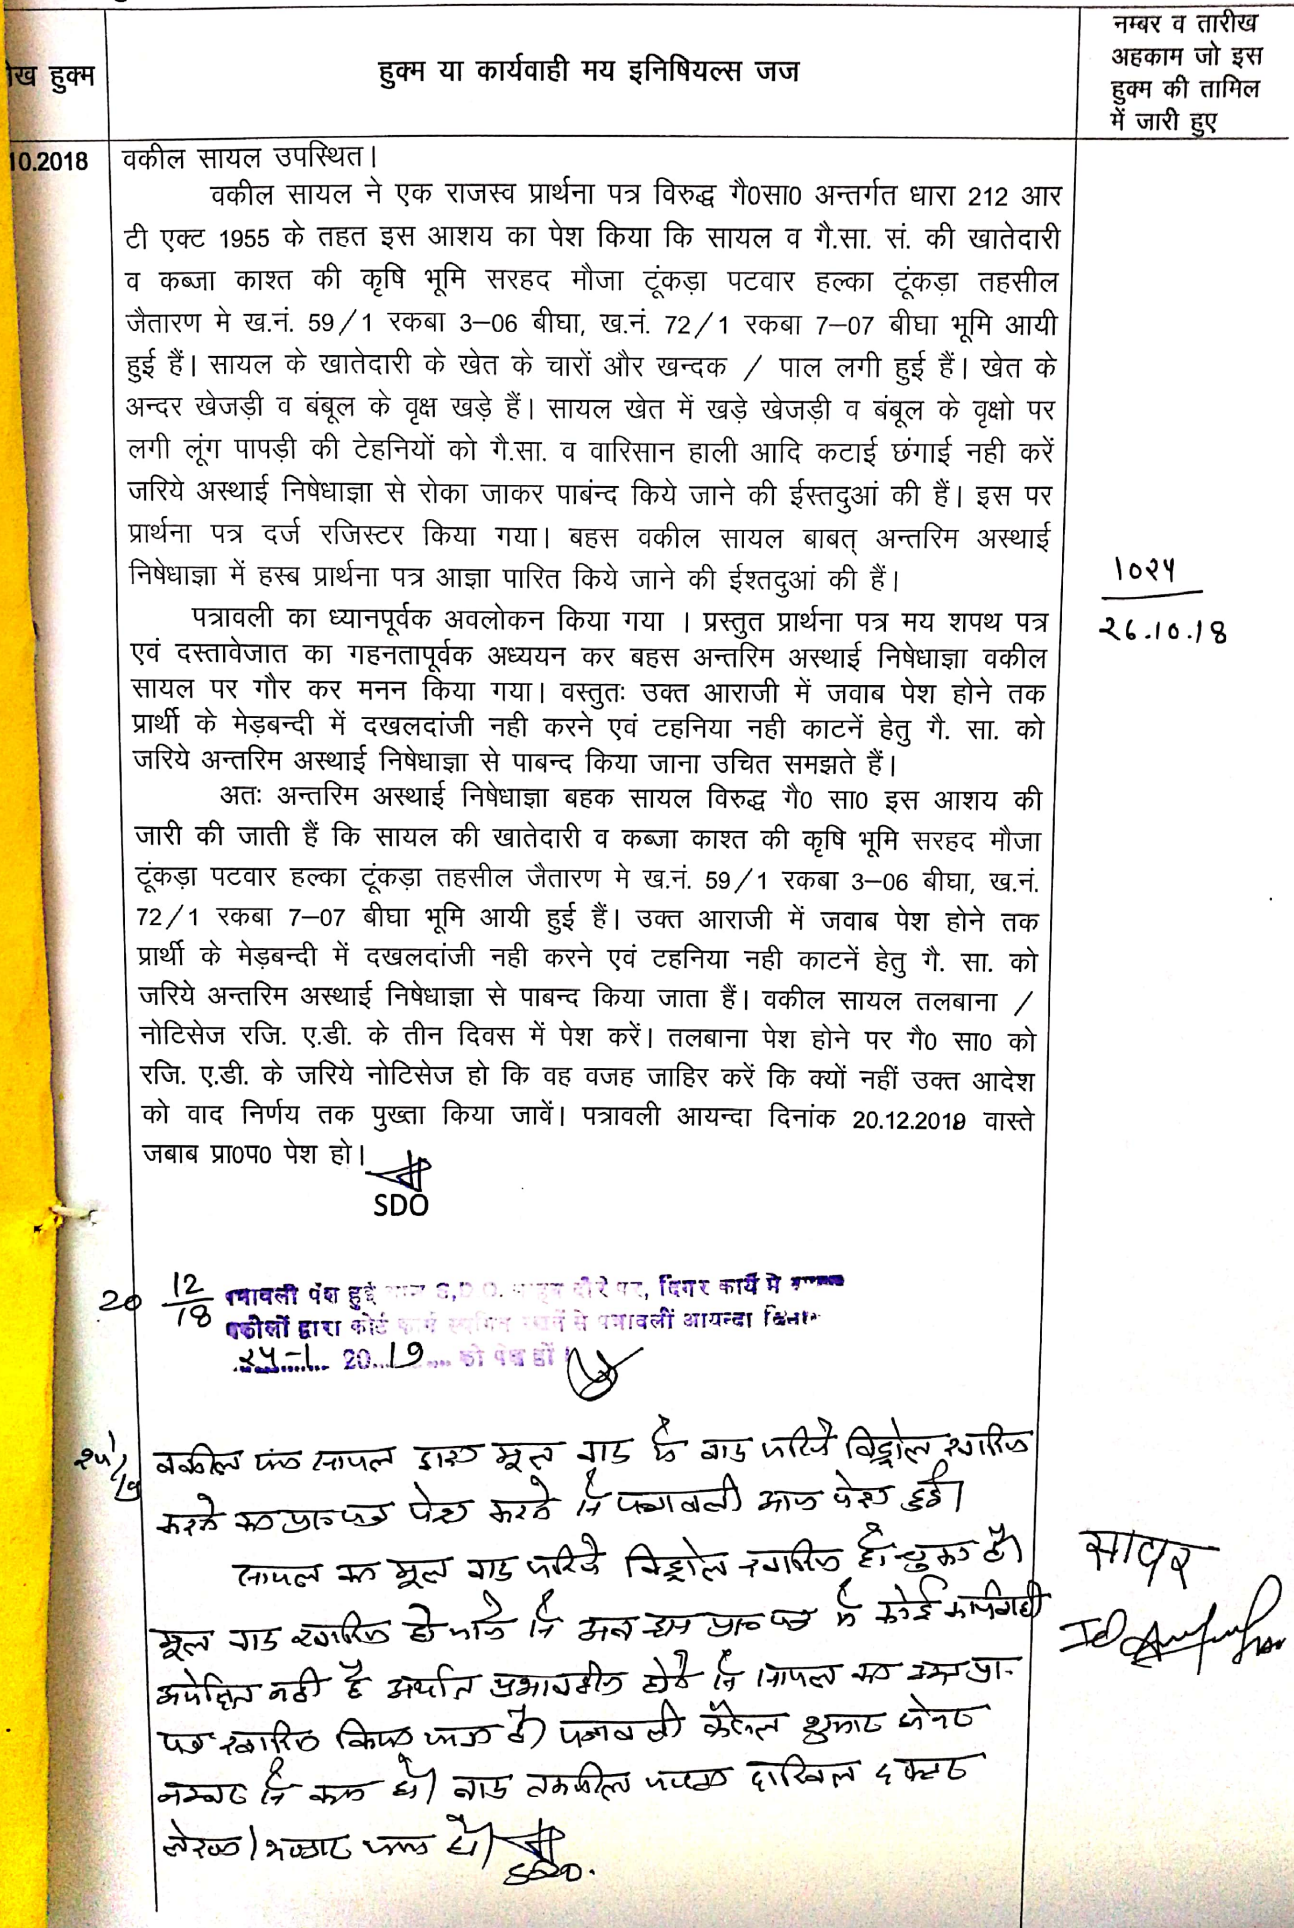 ख हुक्म
हुक्म या कार्यवाही मय इनिषियल्स जज
नम्बर व तारीख
अहकाम जो इस
हुक्म की तामिल
में जारी हुए
10.2018
वकील सायल उपस्थित।
वकील सायल ने एक राजस्व प्रार्थना पत्र विरुद्ध गै0सा0 अन्तर्गत धारा 212 आर
टी एक्ट 1955 के तहत इस आशय का पेश किया कि सायल व गै.सा. सं. की खातेदारी
व कब्जा काश्त की कृषि भूमि सरहद मौजा टूंकड़ा पटवार हल्का टूंकड़ा तहसील
जैतारण मे ख.नं. 59/1 रकबा 3–06 बीघा, ख.नं. 72/1 रकबा 7–07 बीघा भूमि आयी
हुई हैं। सायल के खातेदारी के खेत के चारों और खन्दक / पाल लगी हुई हैं। खेत के
अन्दर खेजड़ी व बंबूल के वृक्ष खड़े हैं। सायल खेत में खड़े खेजड़ी व बंबूल के वृक्षो पर
लगी लूंग पापड़ी की टेहनियों को गै.सा. व वारिसान हाली आदि कटाई छंगाई नही करें
जरिये अस्थाई निषेधाज्ञा से रोका जाकर पाबंन्द किये जाने की ईस्तदुआं की हैं। इस पर
प्रार्थना पत्र दर्ज रजिस्टर किया गया। बहस वकील सायल बाबत् अन्तरिम अस्थाई
निषेधाज्ञा में हस्ब प्रार्थना पत्र आज्ञा पारित किये जाने की ईश्तदुआं की हैं।
१०२५
२६.१०.१8
पत्रावली का ध्यानपूर्वक अवलोकन किया गया । प्रस्तुत प्रार्थना पत्र मय शपथ पत्र
एवं दस्तावेजात का गहनतापूर्वक अध्ययन कर बहस अन्तरिम अस्थाई निषेधाज्ञा वकील
सायल पर गौर कर मनन किया गया। वस्तुतः उक्त आराजी में जवाब पेश होने तक
प्रार्थी के मेड़बन्दी में दखलदांजी नही करने एवं टहनिया नही काटनें हेतु गै. सा. को
जरिये अन्तरिम अस्थाई निषेधाज्ञा से पाबन्द किया जाना उचित समझते हैं।
अतः अन्तरिम अस्थाई निषेधाज्ञा बहक सायल विरुद्ध गै0 सा0 इस आशय की
जारी की जाती हैं कि सायल की खातेदारी व कब्जा काश्त की कृषि भूमि सरहद मौजा
टूंकड़ा पटवार हल्का टूंकड़ा तहसील जैतारण मे ख.नं. 59/1 रकबा 3–06 बीघा, ख.नं.
72/1 रकबा 7–07 बीघा भूमि आयी हुई हैं। उक्त आराजी में जवाब पेश होने तक
प्रार्थी के मेड़बन्दी में दखलदांजी नही करने एवं टहनिया नही काटनें हेतु गै. सा. को
जरिये अन्तरिम अस्थाई निषेधाज्ञा से पाबन्द किया जाता हैं। वकील सायल तलबाना /
नोटिसेज रजि. ए.डी. के तीन दिवस में पेश करें। तलबाना पेश होने पर गै0 सा0 को
रजि. ए.डी. के जरिये नोटिसेज हो कि वह वजह जाहिर करें कि क्यों नहीं उक्त आदेश
को वाद निर्णय तक पुख्ता किया जावें। पत्रावली आयन्दा दिनांक 20.12.2018 वास्ते
जबाब प्रा0प0 पेश हो।
SDO
20 12/18
पत्रावली पेश हुई S.D.O. दौरे पर, दिगर कार्य मे
वकीलों द्वारा कोर्ट कार्य स्थगित से पत्रावलीं आयन्दा
२५-1 20 19 को पेश हों
वकील सायल द्वारा मूल वाद के वाद जरिये विड्रोल खारिज
करने का पेश करने से पत्रावली आज पेश हुई।
सायल का मूल वाद जरिये विड्रोल खारिज हो चुका है।
मूल वाद खारिज हो जाने से अब इस प्रा० पत्र में कोई कार्यवाही
अपेक्षित नही है अर्थात प्रभावहीन होने से सायल का उक्त प्रा-
पत्र खारिज किया जाता है। पत्रावली फैसल शुमार होकर
नम्बर से कम हो। बाद तकमील दाखिल दफ्तर
हो।
SDO.